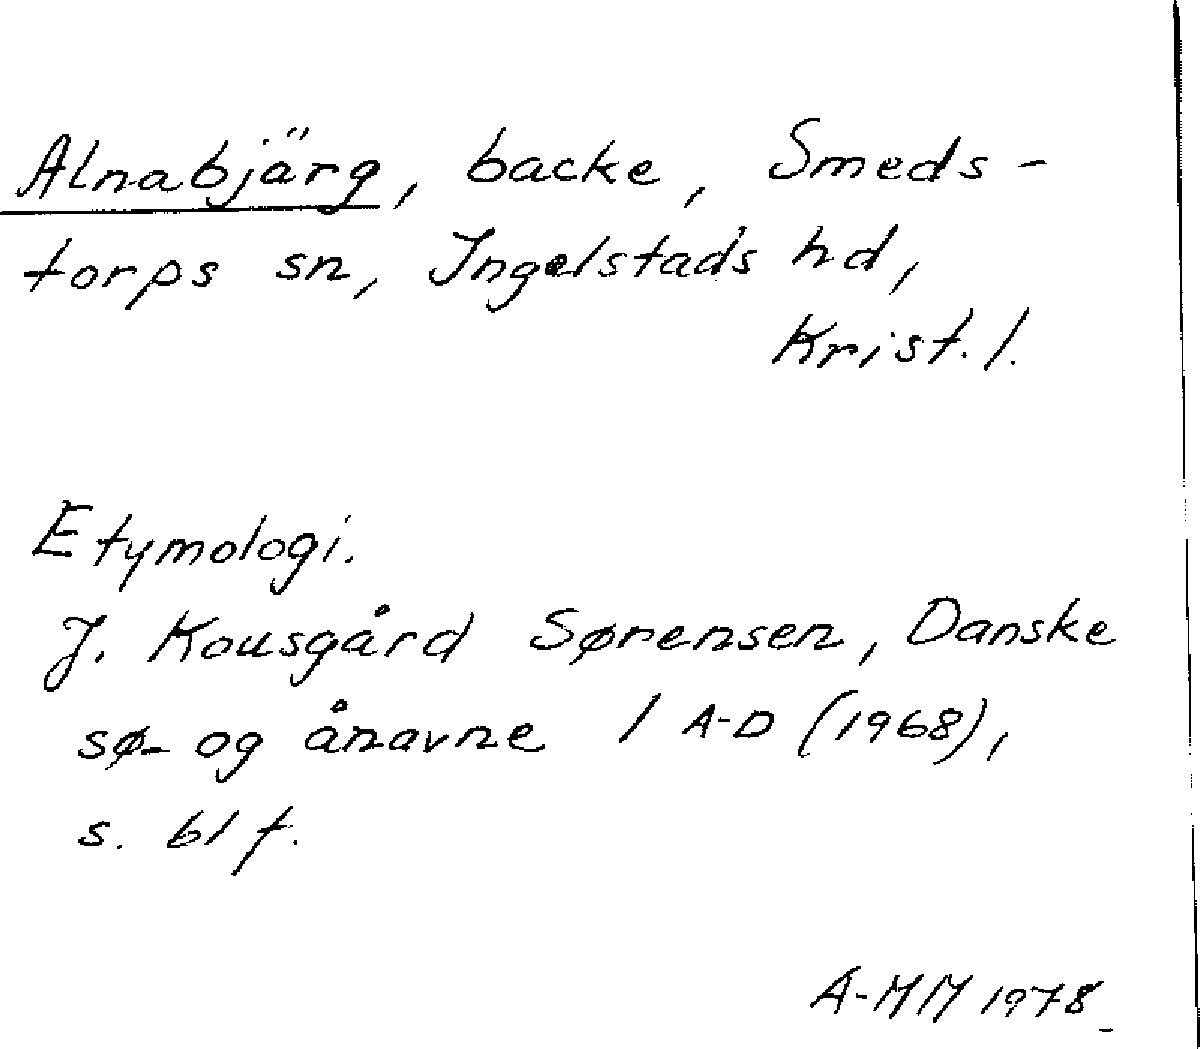 Alnabjärg, backe, Smeds-
torps sn, Ingelstads hd,
Krist. l.
Etymologi.
J. Kousgård Sørensen, Danske
sø- og ånavne 1 A-D (1968),
s. 61 f.
A-MM 1978